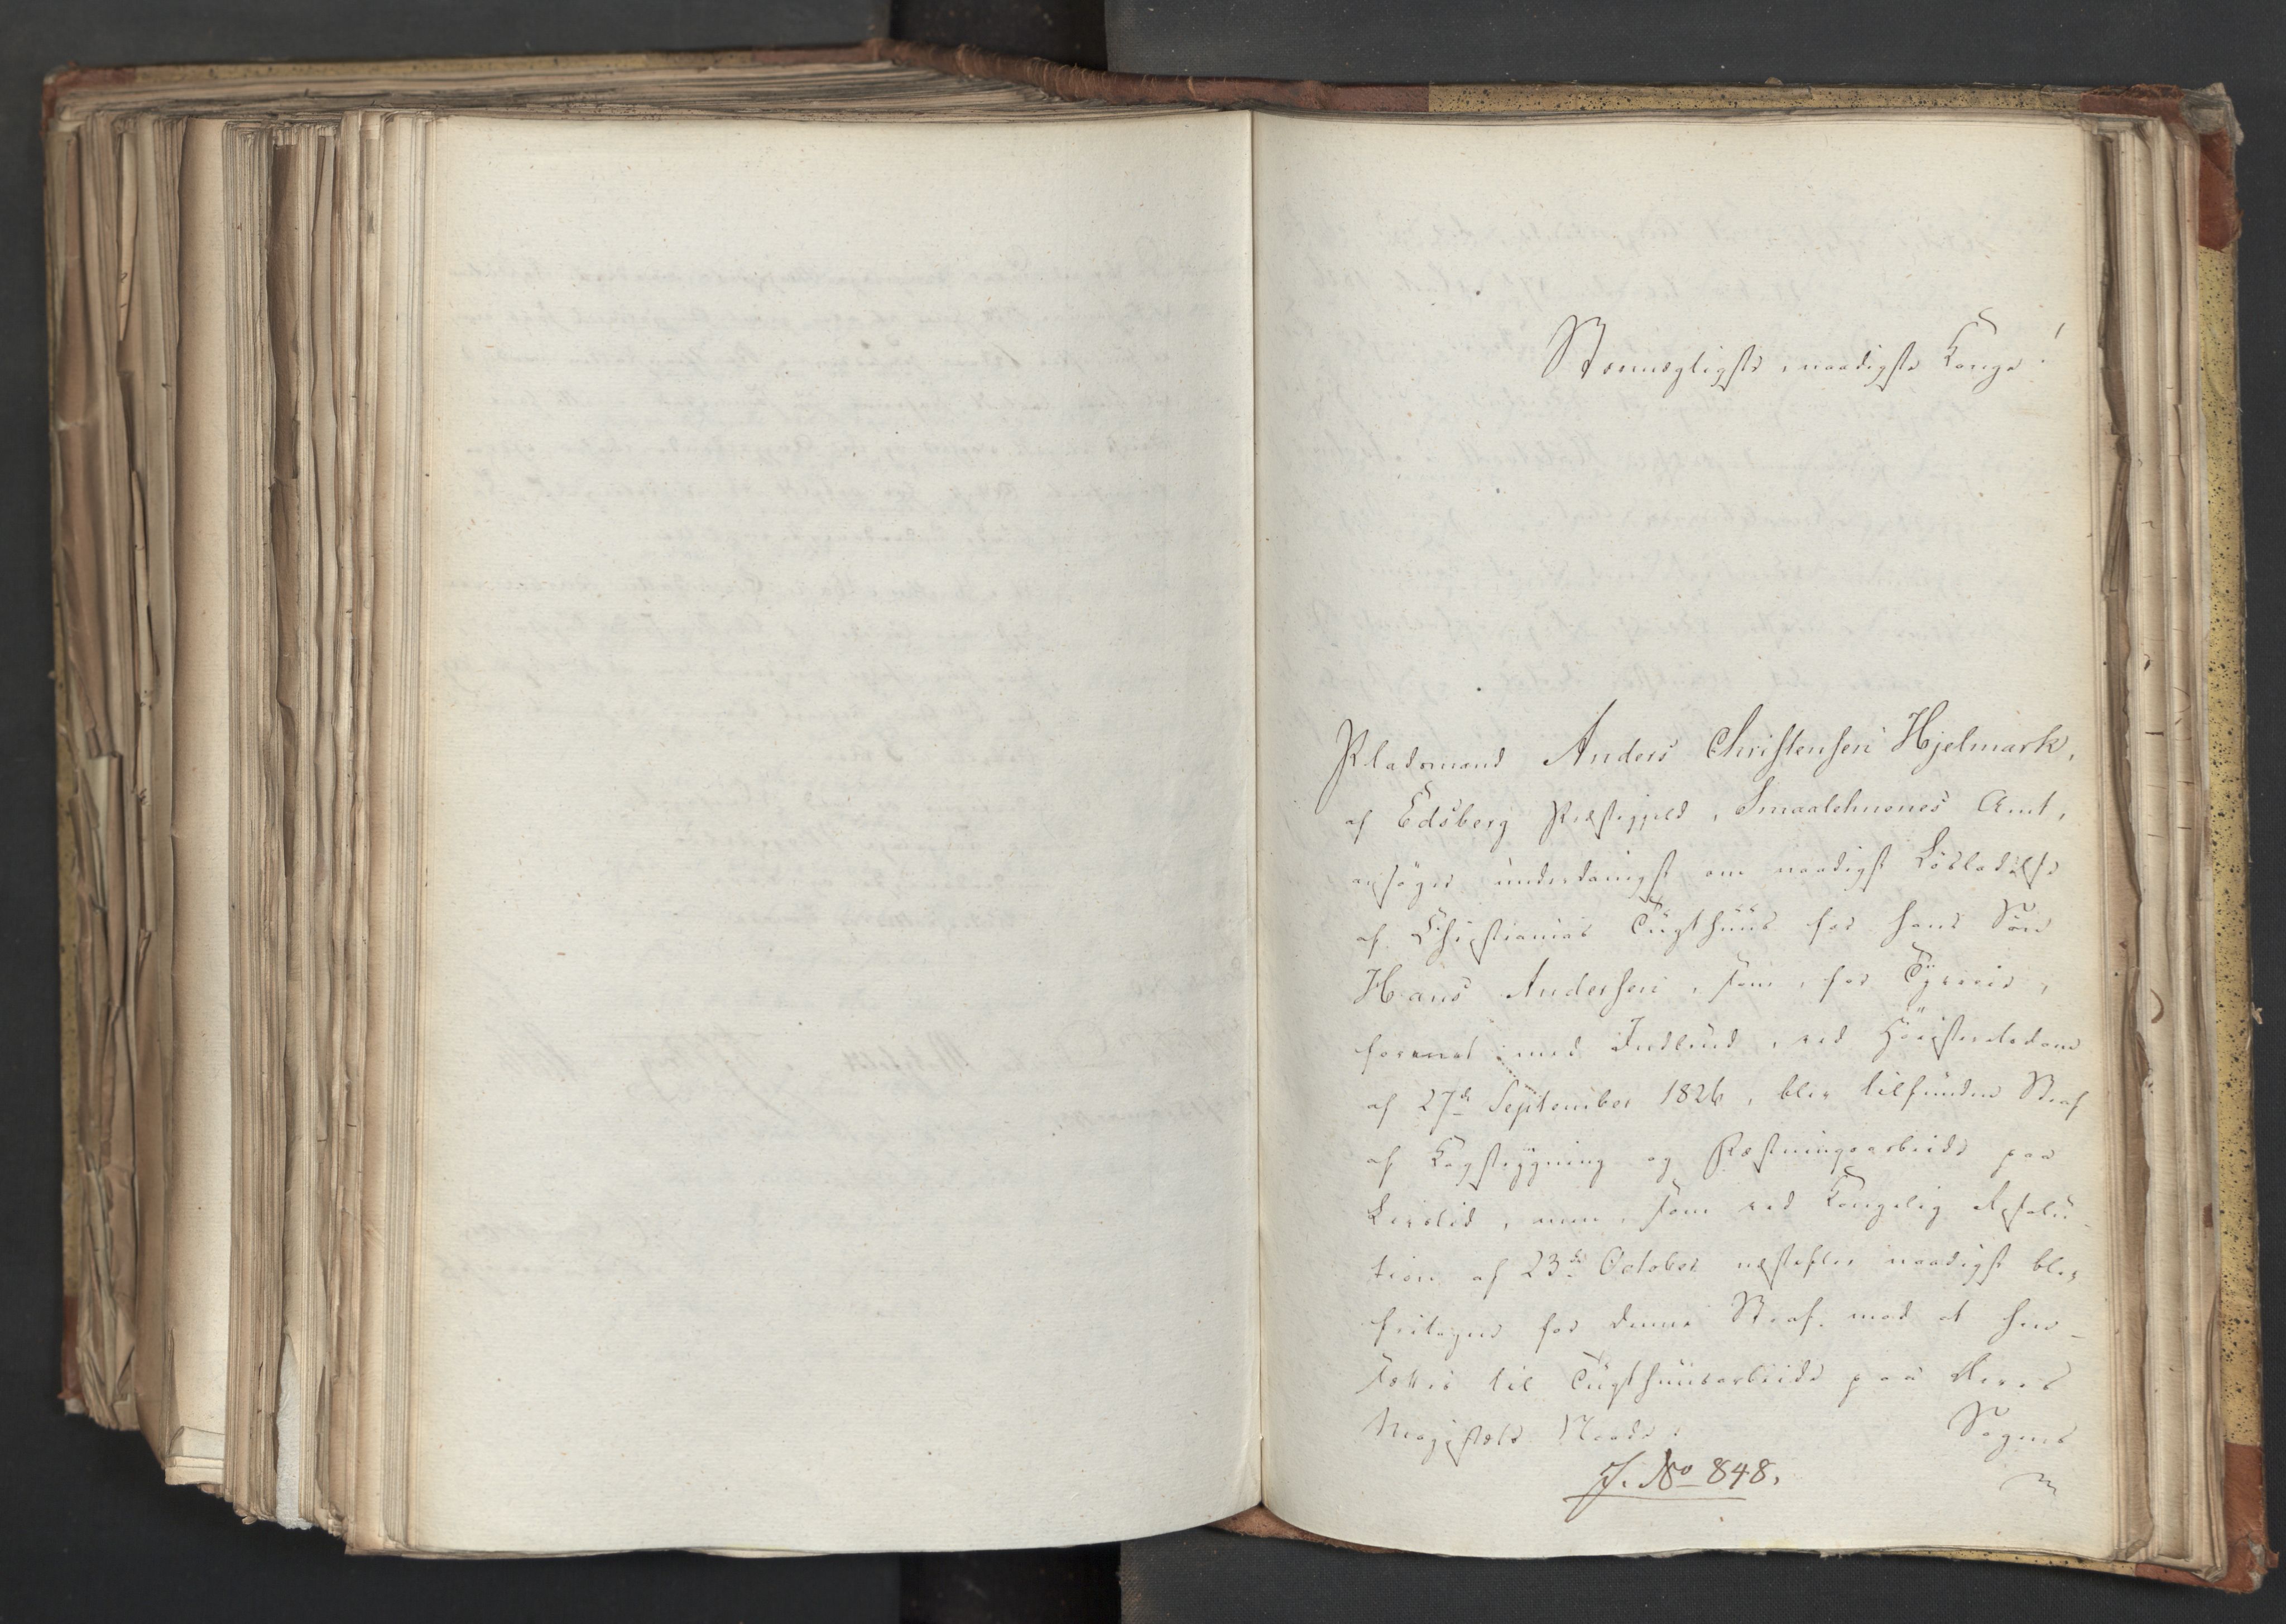 Stormægtigste, naadigste Konge!
Pladsmand Anders Christensen Hjelmark,
af Edsberg Præstegjeld, Smaalehnenes Amt,
ansøger underdanigst om naadigst Løsladelse
af Christianias Tugthuus for hans Søn
Hans Andersen, som, for Tyverie,
forenet med Indbrud, ved Høiesteretsdom
af 27de September 1826, blev tilfunden Straf
af Kagstrygning og Fæstningsarbeide paa
Livstid, men, som ved Kongelig Resolu-
tion af 23de October næstefter naadigst blev
fritagen for denne Straf mod at hen-
sættes til Tugthuusarbeide paa Deres
Majestæts Naade.
Sognets
J. No 848.